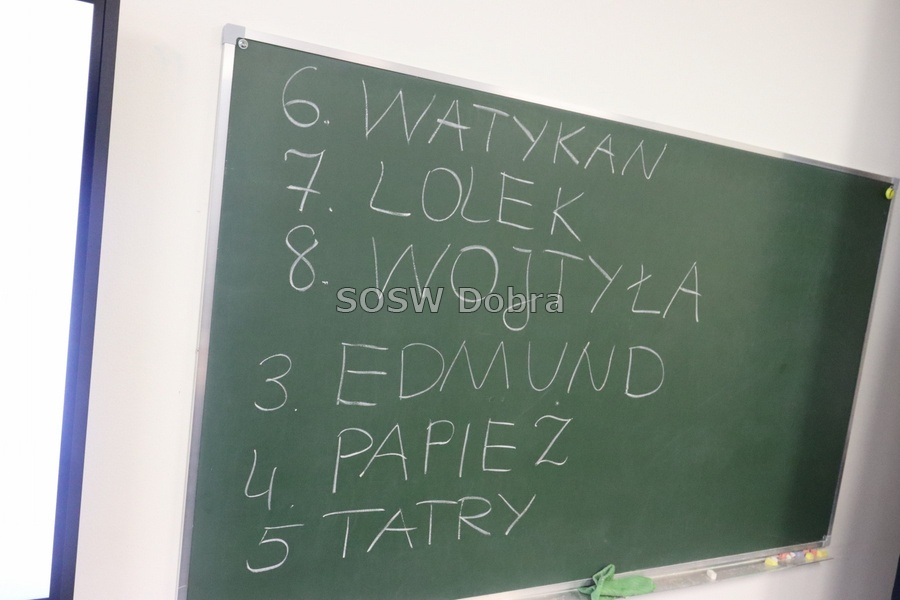 6. WATYKAN
7. LOLEK
8. WOJTYŁA
SOSW Dobra
3. EDMUND
4. PAPIEŻ
5 TATRY